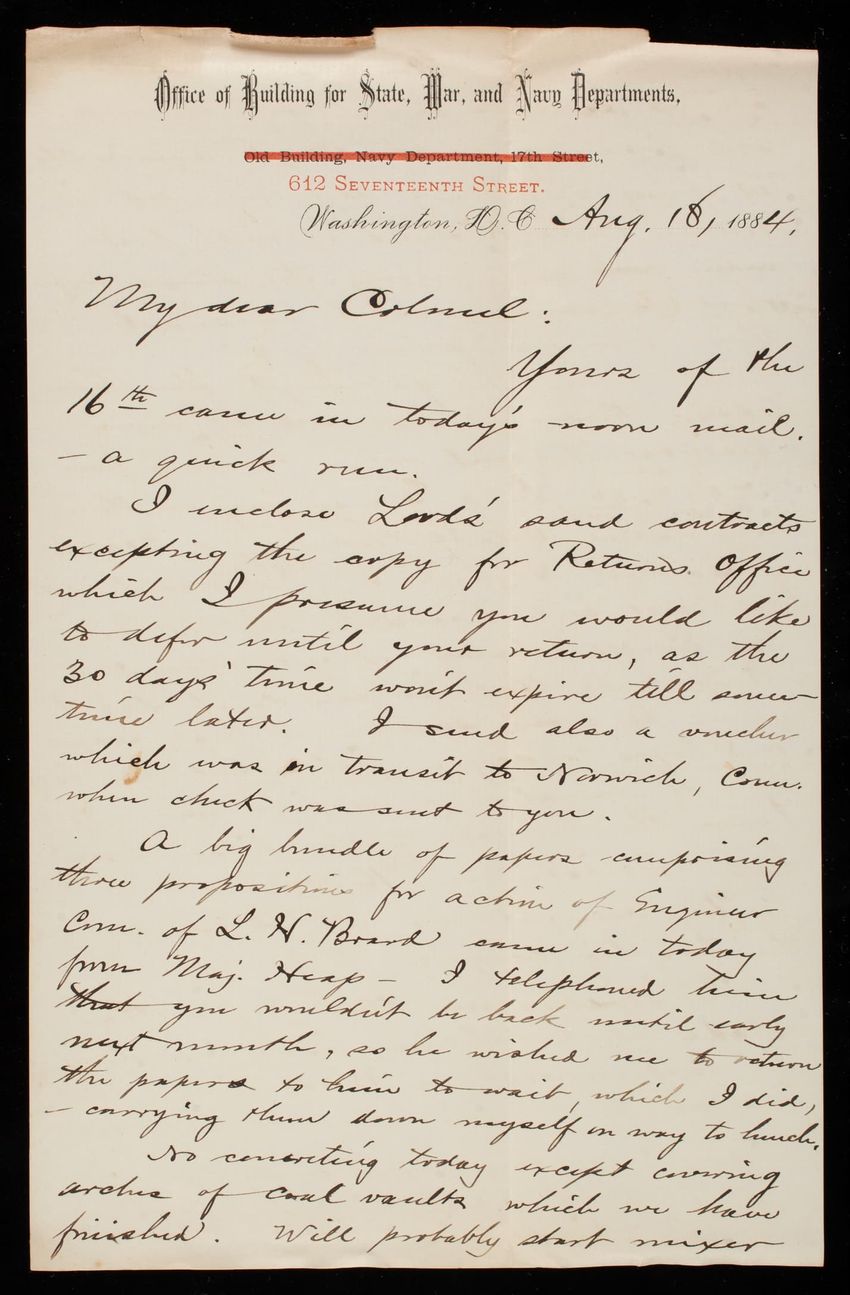 Office of Building for State, War, and Navy Departments,
Old Building, Navy Department, 17th Street,
612 Seventeenth Street.
Washington, D.C. Aug. 18, 1884.
My dear Colonel:
Yours of the
16th came in today's noon mail.
- a quick run.
I inclose Lords' sand contracts
excepting the copy for Returns Office
which I presume you would like
to defer until your return, as the
30 days' time won't expire till some
time later. I send also a voucher
which was in transit to Norwich, Conn.
when check was sent to you.
A big bundle of papers comprising
three propositions for action of Engineer
Com. of L. H. Board came in today
from Maj. Heap - I telephoned him
that you wouldn't be back until early
next month, so he wished me to return
the papers to him to wait, which I did,
- carrying them down myself on way to lunch.
No concreting today except covering
arches of coal vaults which we have
finished. Will probably start mixer